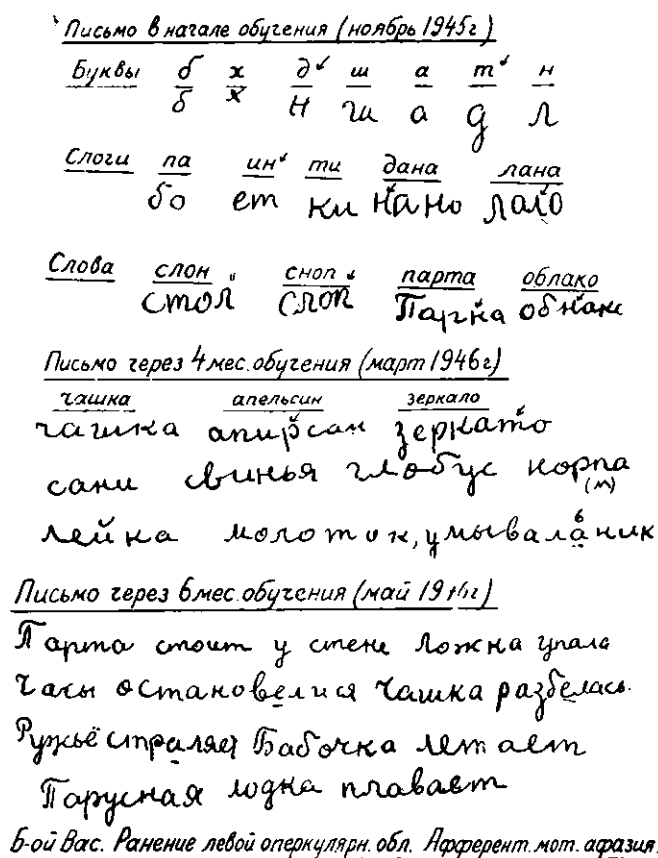 Письмо в начале обучения (ноябрь 1945г)
Буквы б х д ш а т н
б х н ш а д л
Слоги па ин ти дана лана
бо ет ки нано лало
Слова слон сноп парта облако
стол слоп Парка обнако
Письмо через 4 мес. обучения (март 1946г)
чашка апельсин зеркало
чашка апирсан зеркато
сани свинья глобус корпа
(т)
в
лейка молоток, умываланик
Письмо через 6 мес. обучения (май 1946г)
Парта стоит у стене Ложка упала
Часы остановелися Чашка разбелась.
Ружьё страляет Бабочка летает
Парусная лодка плавает
Б-ой Вас. Ранение левой оперкулярн. обл. Афферент. мот. афазия.